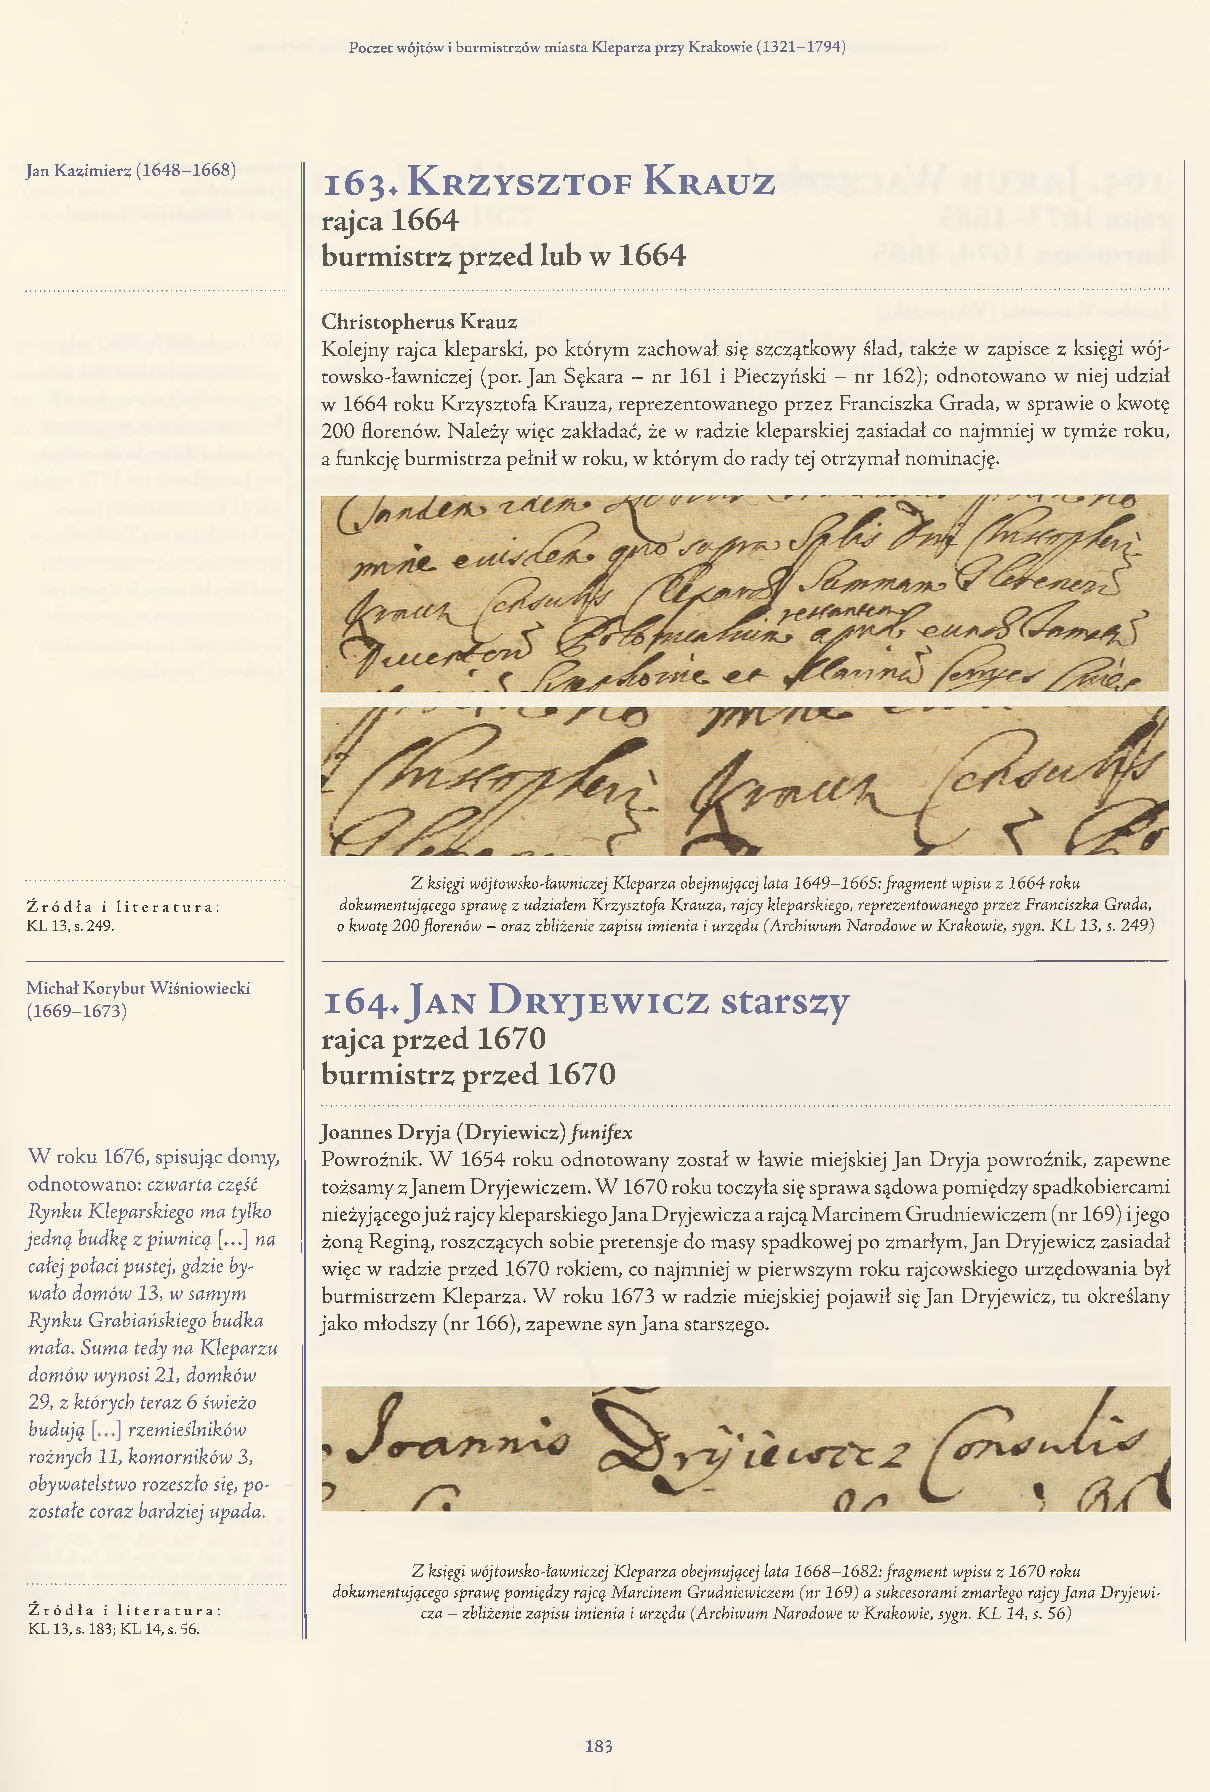 Poczet wójtów i burmistrzów miasta Kleparza przy Krakowie (1321–1794)
Jan Kazimierz (1648–1668)
163. Krzysztof Krauz
rajca 1664
burmistrz przed lub w 1664
Christopherus Krauz
Kolejny rajca kleparski, po którym zachował się szczątkowy ślad, także w zapisce z księgi wój-
towsko-ławniczej (por. Jan Sękara – nr 161 i Pieczyński – nr 162); odnotowano w niej udział
w 1664 roku Krzysztofa Krauza, reprezentowanego przez Franciszka Grada, w sprawie o kwotę
200 florenów. Należy więc zakładać, że w radzie kleparskiej zasiadał co najmniej w tymże roku,
a funkcję burmistrza pełnił w roku, w którym do rady tej otrzymał nominację.
Tandem idem
mine eiusdem quo supra Christopheri
Krauz Consulis Summam
restantem
Polonicalium apud
et
Christopheri Krauz Consulis
Z księgi wójtowsko-ławniczej Kleparza obejmującej lata 1649–1665: fragment wpisu z 1664 roku
dokumentującego sprawę z udziałem Krzysztofa Krauza, rajcy kleparskiego, reprezentowanego przez Franciszka Grada,
o kwotę 200 florenów – oraz zbliżenie zapisu imienia i urzędu (Archiwum Narodowe w Krakowie, sygn. KL 13, s. 249)
Źródła i literatura:
KL 13, s. 249.
Michał Korybut Wiśniowiecki
(1669–1673)
164. Jan Dryjewicz starszy
rajca przed 1670
burmistrz przed 1670
Joannes Dryja (Dryiewicz) funifex
Powroźnik. W 1654 roku odnotowany został w ławie miejskiej Jan Dryja powroźnik, zapewne
tożsamy z Janem Dryjewiczem. W 1670 roku toczyła się sprawa sądowa pomiędzy spadkobiercami
nieżyjącego już rajcy kleparskiego Jana Dryjewicza a rajcą Marcinem Grudniewiczem (nr 169) i jego
żoną Reginą, roszczących sobie pretensje do masy spadkowej po zmarłym. Jan Dryjewicz zasiadał
więc w radzie przed 1670 rokiem, co najmniej w pierwszym roku rajcowskiego urzędowania był
burmistrzem Kleparza. W roku 1673 w radzie miejskiej pojawił się Jan Dryjewicz, tu określany
jako młodszy (nr 166), zapewne syn Jana starszego.
W roku 1676, spisując domy,
odnotowano: czwarta część
Rynku Kleparskiego ma tylko
jedną budkę z piwnicą [...] na
całej połaci pustej, gdzie by-
wało domów 13, w samym
Rynku Grabiańskiego budka
mała. Suma tedy na Kleparzu
domów wynosi 21, domków
29, z których teraz 6 świeżo
budują [...] rzemieślników
rożnych 11, komorników 3,
obywatelstwo rozeszło się, po-
zostałe coraz bardziej upada.
Joannis Dryiewicz Consulis
Z księgi wójtowsko-ławniczej Kleparza obejmującej lata 1668–1682: fragment wpisu z 1670 roku
dokumentującego sprawę pomiędzy rajcą Marcinem Grudniewiczem (nr 169) a sukcesorami zmarłego rajcy Jana Dryjewi-
cza – zbliżenie zapisu imienia i urzędu (Archiwum Narodowe w Krakowie, sygn. KL 14, s. 56)
Źródła i literatura:
KL 13, s. 183; KL 14, s. 56.
183